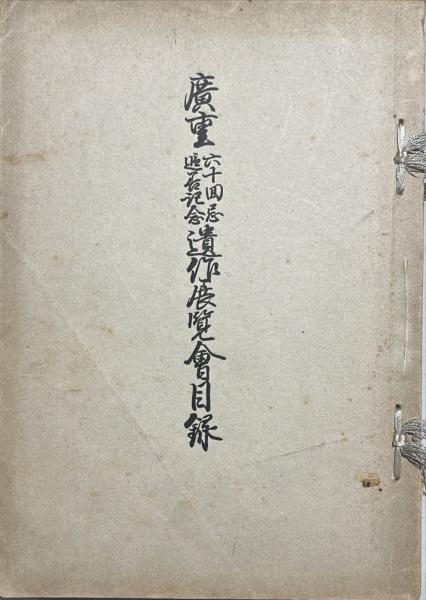 廣重
六十回忌
追善記念
遺作展覧會目録